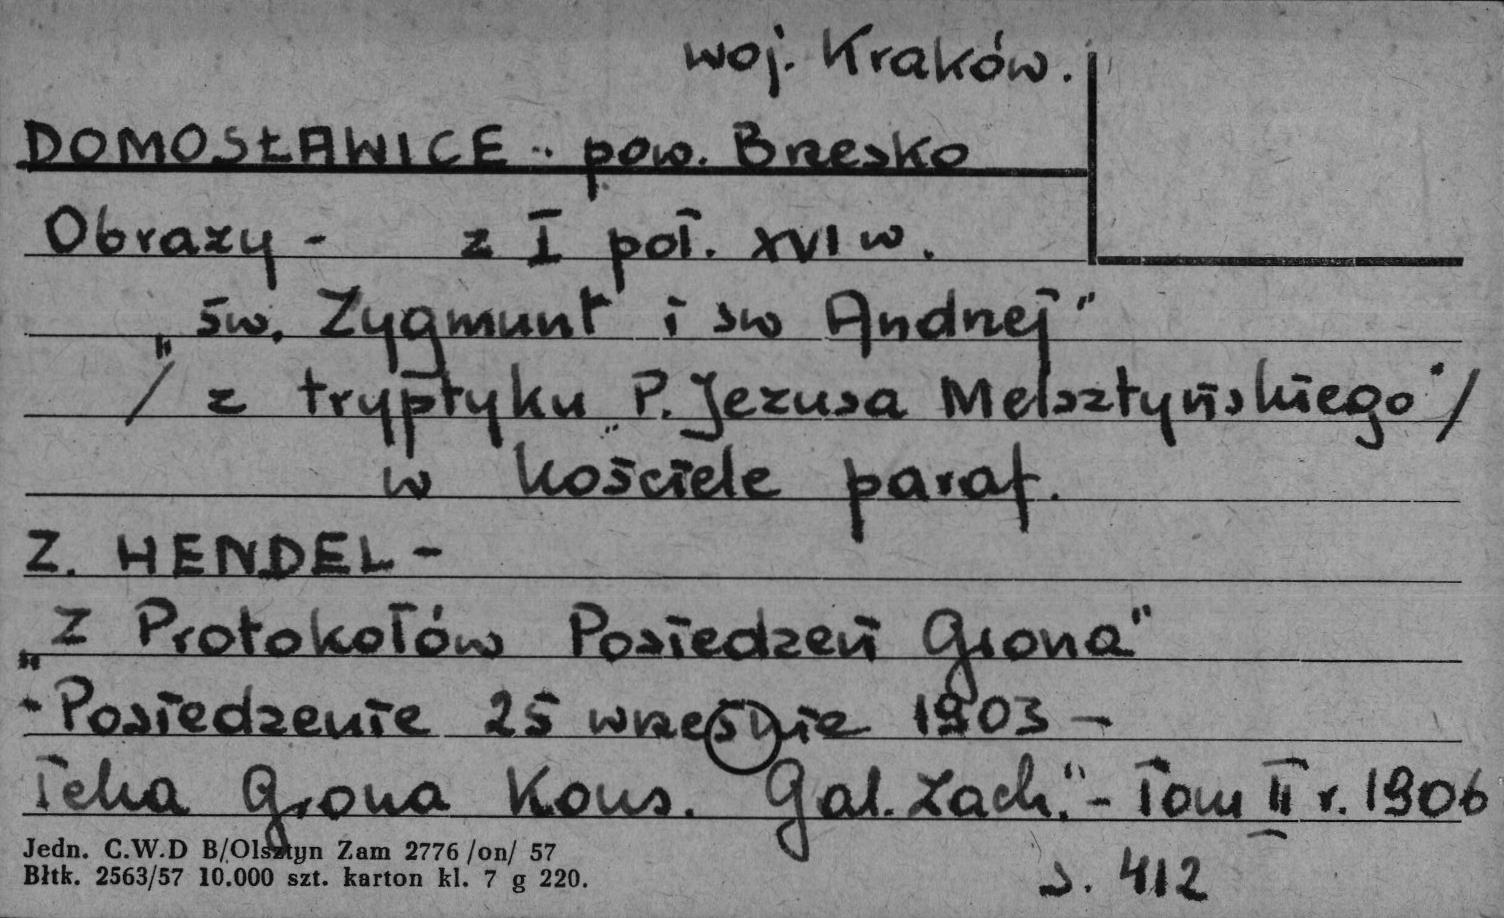 woj. Kraków.
DOMOSŁAWICE - pow. Brzesko
Obrazy - z I poł. XVI w.
„św. Zygmunt i sw Andrzej"
/ z tryptyku „P. Jezusa Melsztyńskiego" /
w kościele paraf.
Z. HENDEL -
„Z Protokołów Posiedzeń Grona"
- Posiedzenie 25 wrześnie 1903 -
Teka Grona Kons. Gal. Zach." - Tom II r. 1906
s. 412
Jedn. C.W.D B/Olsztyn Zam 2776 /on/ 57
Błtk. 2563/57 10.000 szt. karton kl. 7 g 220.